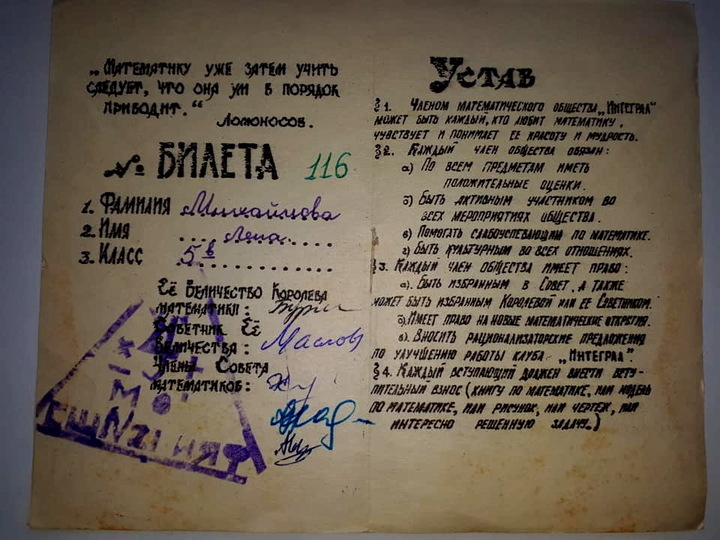 „МАТЕМАТИКУ УЖЕ ЗАТЕМ УЧИТЬ
СЛЕДУЕТ, ЧТО ОНА УМ В ПОРЯДОК
ПРИВОДИТ.“
ЛОМОНОСОВ.
№ БИЛЕТА 116
1. ФАМИЛИЯ Михайлова
2. ИМЯ Лена
3. КЛАСС 5 в
ЕЁ ВЕЛИЧЕСТВО КОРОЛЕВА
МАТЕМАТИКИ:
СОВЕТНИК ЕЁ
ВЕЛИЧЕСТВА: Маслов
ЧЛЕНЫ СОВЕТА
МАТЕМАТИКОВ:
УСТАВ
§1. ЧЛЕНОМ МАТЕМАТИЧЕСКОГО ОБЩЕСТВА „ИНТЕГРАЛ“
МОЖЕТ БЫТЬ КАЖДЫЙ, КТО ЛЮБИТ МАТЕМАТИКУ,
ЧУВСТВУЕТ И ПОНИМАЕТ ЕЕ КРАСОТУ И МУДРОСТЬ.
§2. КАЖДЫЙ ЧЛЕН ОБЩЕСТВА ОБЯЗАН:
а) ПО ВСЕМ ПРЕДМЕТАМ ИМЕТЬ
ПОЛОЖИТЕЛЬНЫЕ ОЦЕНКИ.
б) БЫТЬ АКТИВНЫМ УЧАСТНИКОМ ВО
ВСЕХ МЕРОПРИЯТИЯХ ОБЩЕСТВА.
в) ПОМОГАТЬ СЛАБОУСПЕВАЮЩИМ ПО МАТЕМАТИКЕ.
г) БЫТЬ КУЛЬТУРНЫМ ВО ВСЕХ ОТНОШЕНИЯХ.
§3. КАЖДЫЙ ЧЛЕН ОБЩЕСТВА ИМЕЕТ ПРАВО:
а) БЫТЬ ИЗБРАННЫМ В СОВЕТ, А ТАКЖЕ
МОЖЕТ БЫТЬ ИЗБРАННЫМ КОРОЛЕВОЙ ИЛИ ЕЕ СОВЕТНИКОМ.
б) ИМЕЕТ ПРАВО НА НОВЫЕ МАТЕМАТИЧЕСКИЕ ОТКРЫТИЯ.
в) ВНОСИТЬ РАЦИОНАЛИЗАТОРСКИЕ ПРЕДЛОЖЕНИЯ
ПО УЛУЧШЕНИЮ РАБОТЫ КЛУБА „ИНТЕГРАЛ“.
§4. КАЖДЫЙ ВСТУПАЮЩИЙ ДОЛЖЕН ВНЕСТИ ВСТУ-
ПИТЕЛЬНЫЙ ВЗНОС (КНИГУ ПО МАТЕМАТИКЕ, ИЛИ МОДЕЛЬ
ПО МАТЕМАТИКЕ, ИЛИ РИСУНОК, ИЛИ ЧЕРТЕЖ, ИЛИ
ИНТЕРЕСНО РЕШЕННУЮ ЗАДАЧУ.)